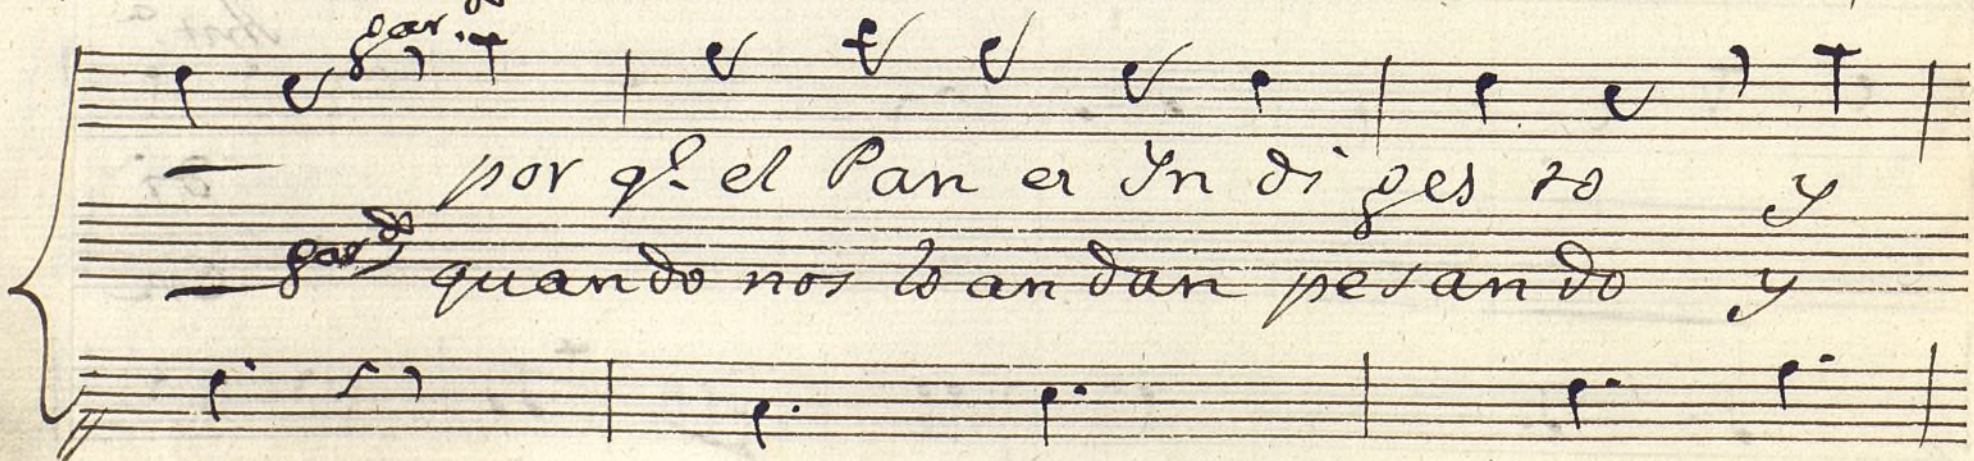 gar.do
— por q.e el Pan es Yn di ges to y
— gar.do quando nos lo an dan pesando y